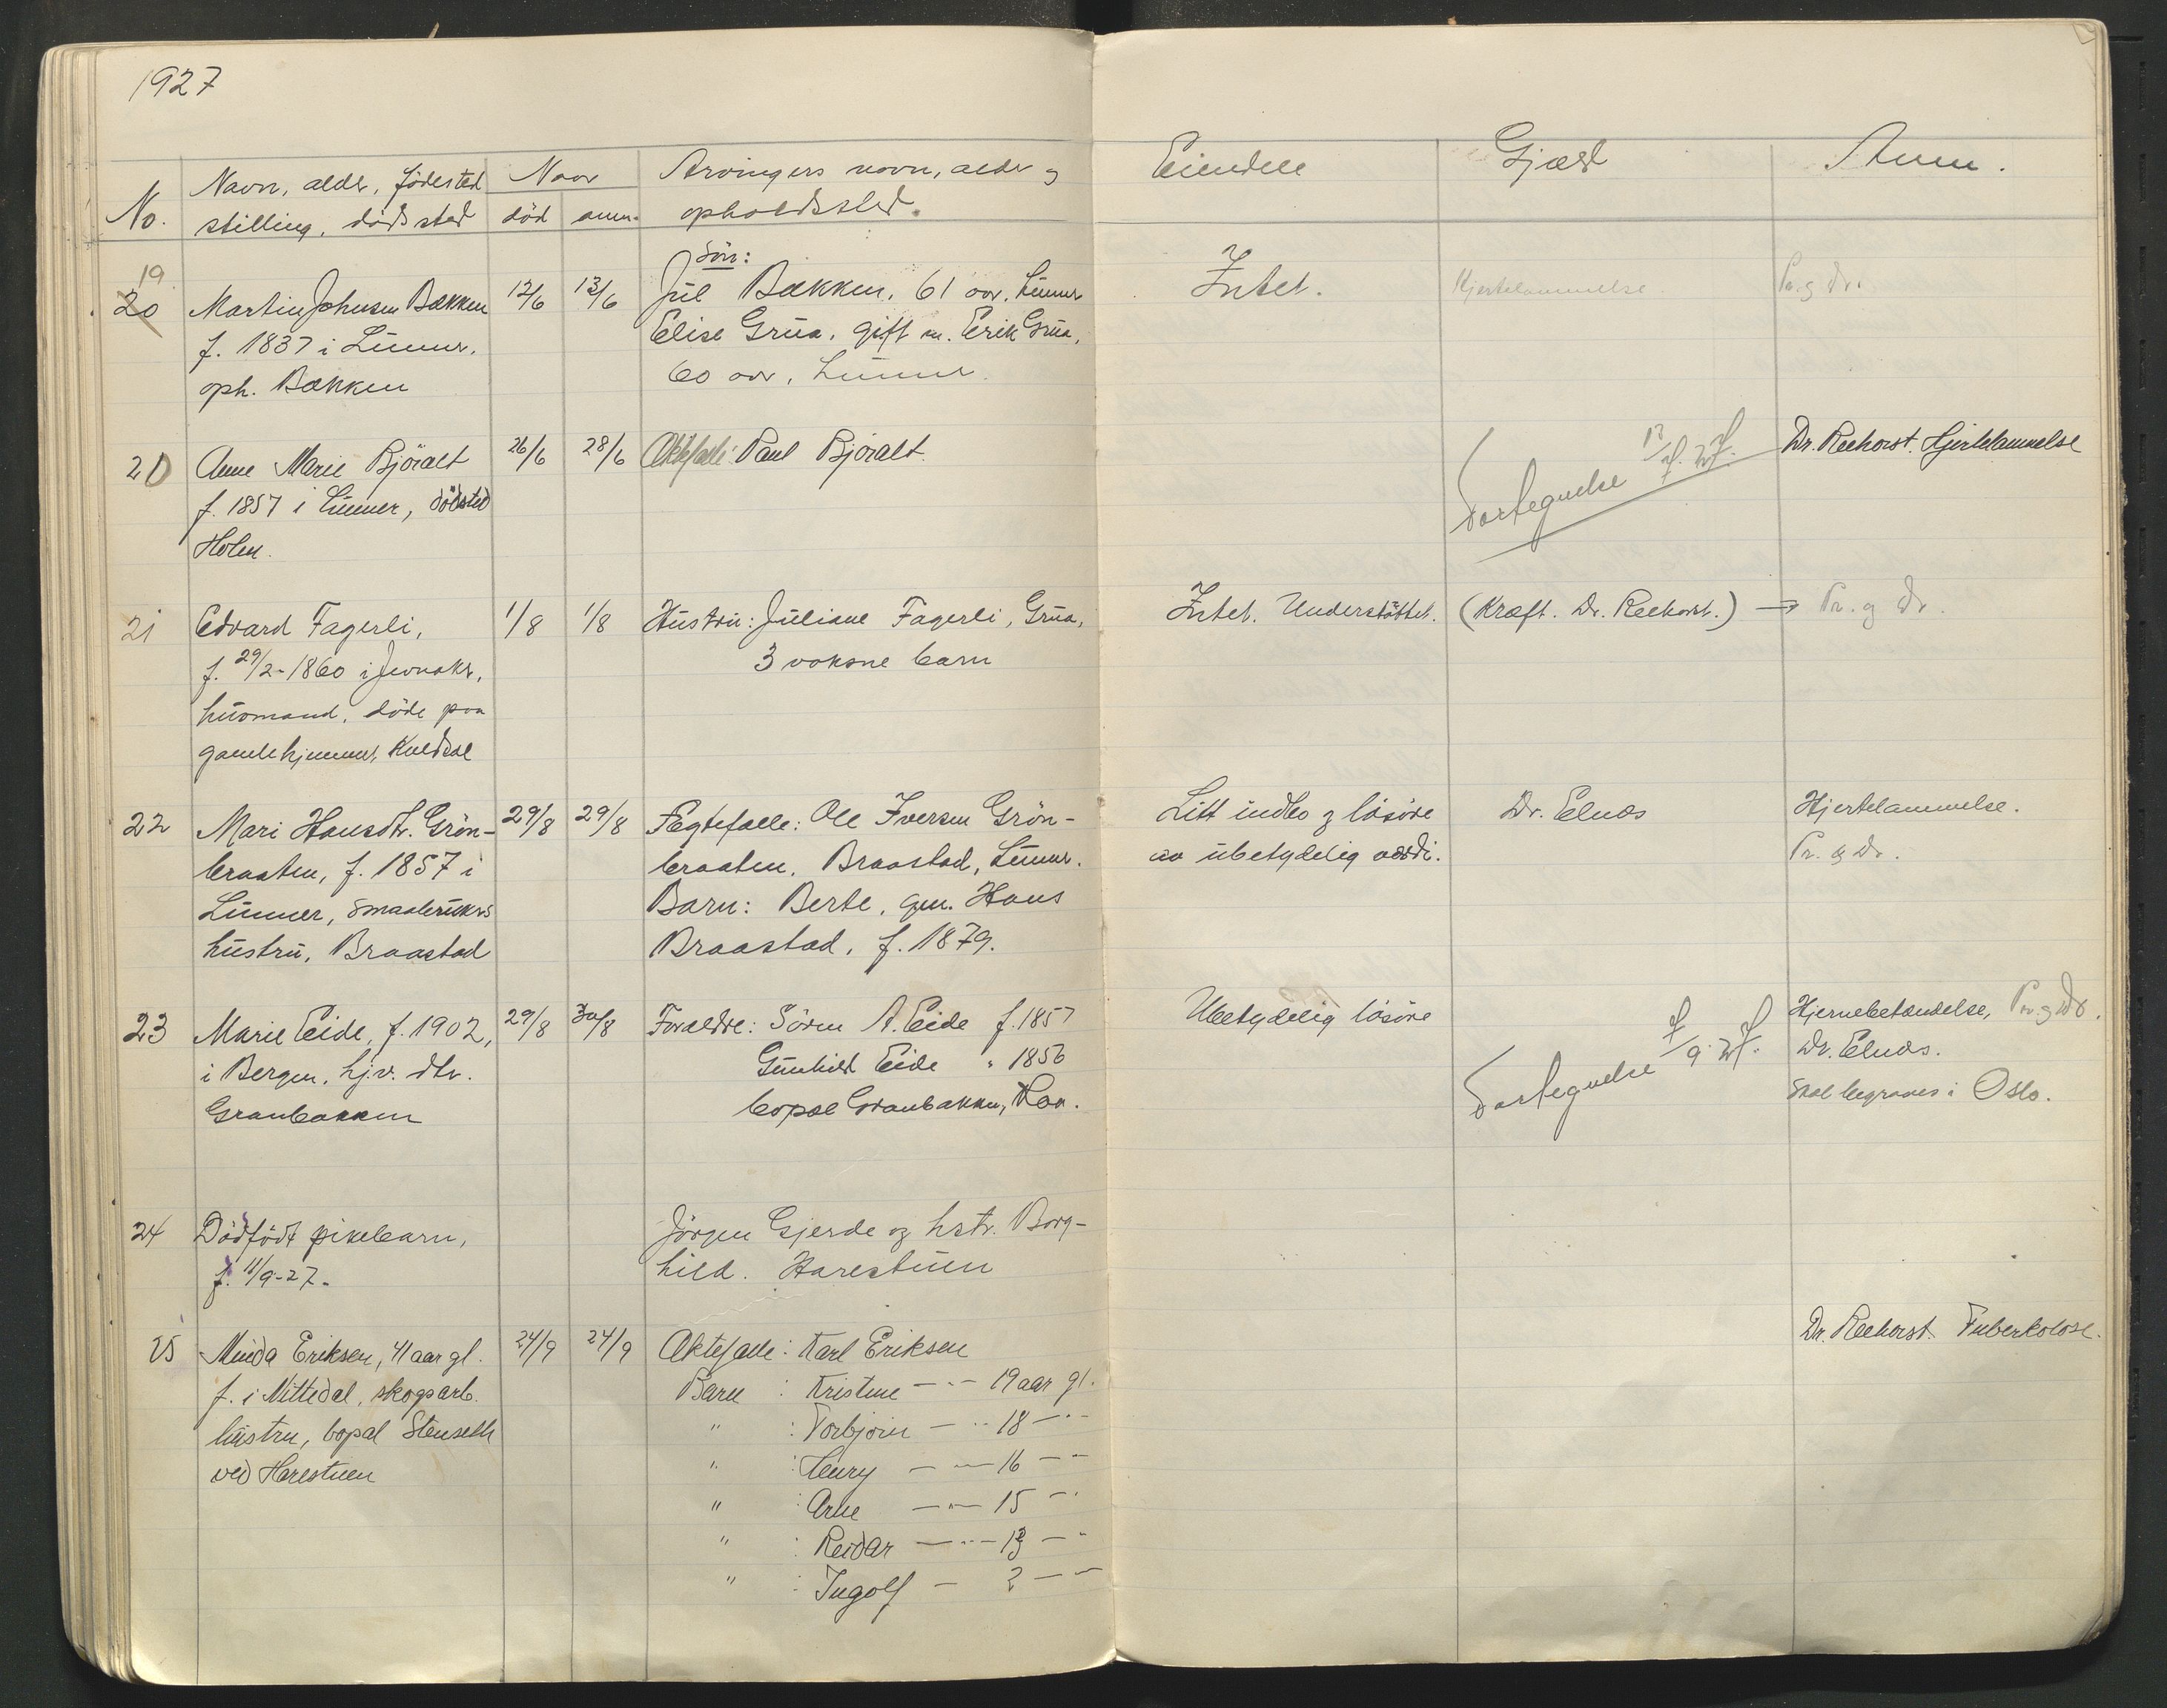 1927
No.
Navn, alder, födested
stilling, dödssted
Naar
död
anm.
Arvingers navn, alder og
opholdssted.
Eiendele
Gjæld
Anm.
19
20
Martin Johnsen Bækken
f. 1837 i Lunner,
oph. Bækken
12/6
13/6
Sön:
Jul Bækken, 61 aar, Lunner
Elise Grua, gift m. Erik Grua,
60 aar, Lunner.
Intet.
Hjertelammelse
Pr. og Dr.
20
Anne Marie Björalt
f. 1857 i Lunner, dödsted
Holm.
26/6
28/6
Aktefælle: Paul Björalt
Fortegnelse
Dr. Reehorst. Hjertelammelse
21
Edvard Fagerli,
f. 29/2-1860 i Jevnaker,
husmand, döde paa
gamlehjemmet,
1/8
1/8
Hustru: Juliane Fagerli, Grua,
3 voksne barn
Intet. Understöttet.
(Kræft. Dr. Reehorst.) →
Pr. og Dr.
22
Mari Hansdtr. Grön-
braaten, f. 1857 i
Lunner, smaabrukers
hustru, Braastad
29/8
29/8
Ægtefælle: Ole Iversen Grön-
braaten, Braastad, Lunner.
Barn: Berte, gm. Hans
Braastad, f. 1879.
Litt indbo og lösöre
av ubetydelig værdi.
Dr. Elnæs
Hjertelammelse.
Pr. og Dr.
23
Marie Eide, f. 1902,
i Bergen, hjv. dtr.
Granbakken
29/8
30/8
Forældre: Sören A. Eide f. 1857
Gunhild Eide " 1856
bopæl Granbakken, Roa.
Ubetydelig lösöre
Fortegnelse
Hjernebetændelse, Pr. og Dr.
Dr. Elnæs.
Skal begraves i Oslo.
24
Dödfödt pikebarn,
f. 11/9-27.
Jörgen Gjerde og hstr. Borg-
hild. Harestuen
25
Minda Eriksen, 41 aar gl.
f. i Nittedal, skogsarb.
hustru, bopal Stenseth
ved Harestuen
24/9
24/9
Aktefalle: Karl Eriksen
Barn : Kristine — " — 19 aar gl.
" : Torbjörn — " 18 — " —
" : Henry — " — 16 — " —
" : Arne — " — 15 — "
" : Reidar — " — 13 — "
" : Ingolf — 2 — " —
Dr. Reehorst. Tuberkolose.